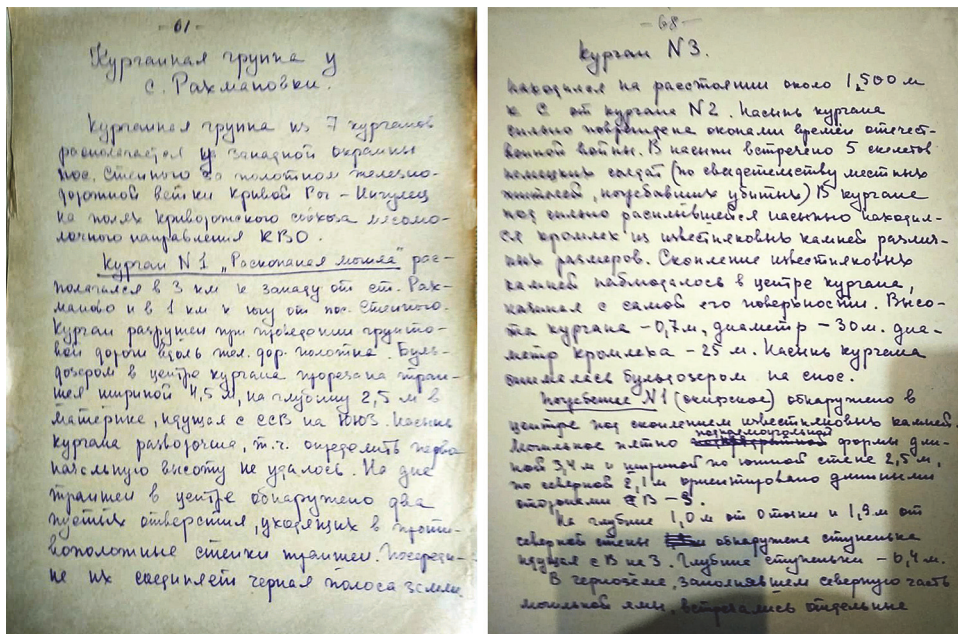 - 61 -
Курганная группа у
с. Рахмановки.
Курганная группа из 7 курганов
располагается у западной окраины
пос. Степного за полотном железно-
дорожной ветки Кривой Рог - Ингулец
на полях Криворожского совхоза мясомо-
лочного направления КВО.
Курган N1 „Раскопаная могила" рас-
полагался в 3 км к западу от ст. Рах-
маново и в 1 км к югу от пос. Степного.
Курган разрушен при проведении грунто-
вой дороги вдоль жел. дор. полотна. Буль-
дозером в центре кургана прорезана тран-
шея шириной 4,5 м, на глубину 2,5 м в
материке, идущая с ССВ на ЮЮЗ. Насыпь
кургана разворочена, т.ч. определить перво
начальную высоту не удалось. На дне
траншеи в центре обнаружено два
пустых отверстия, уходящих в проти-
воположные стенки траншеи. Посереди-
не их соединяет черная полоса земли
- 68 -
Курган N3.
находился на расстоянии около 1,500 м
к С от кургана N2. Насыпь кургана
сильно повреждена окопами времен отечест-
венной войны. В насыпи встречено 5 скелетов
немецких солдат (по свидетельству местных
жителей, погребавших убитых) В кургане
под сильно расплывшейся насыпью находил-
ся кромлех из известняковых камней различ-
ных размеров. Скопление известняковых
камней наблюдалось в центре кургана,
начиная с самой его поверхности. Высо-
та кургана - 0,7м, диаметр - 30м. диа-
метр кромлеха - 25 м. Насыпь кургана
снималась бульдозером на снос.
Погребение N1 (скифское) обнаружено в
центре под скоплением известняковых камней.
Могильное пятно подпрямоугольной формы дли-
ной 3,4 м и шириной по южной стене 2,5 м,
по северной 2,1 м ориентировано длинными
сторонами В - З.
На глубине 1,0 м от 0 точки и 1,9 м от
северной стены обнаружена ступенька
идущая с В на З. Глубина ступеньки - 0,4 м.
В черноземе, заполнявшем северную часть
могильной ямы, встречались отдельные